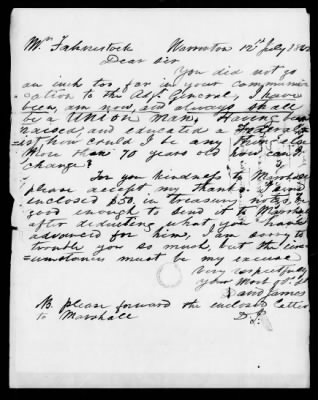 Mr Fahnestock Warrenton 12th July 186
Dear Sir
You did not go
an inch too far in your communi
cation to the Adjt. General, I have
been, am now, and always shall
be a Union man. Having been
raised, and educated a Federal
ist, how could I be any thing else
More than 70 years old how can I
change?
For you kindness to Marshall
please accept my thanks. Find
enclosed $50. in treasury notes, be
good enough to send it to Marshall
after deducting what you have
advanced for him, I am sorry to
trouble you so much, but the circ
umstances must be my excuse
Very respectfully
your Most obt. S
David James
NB. please forward the enclosed letter D J.
to Marshall